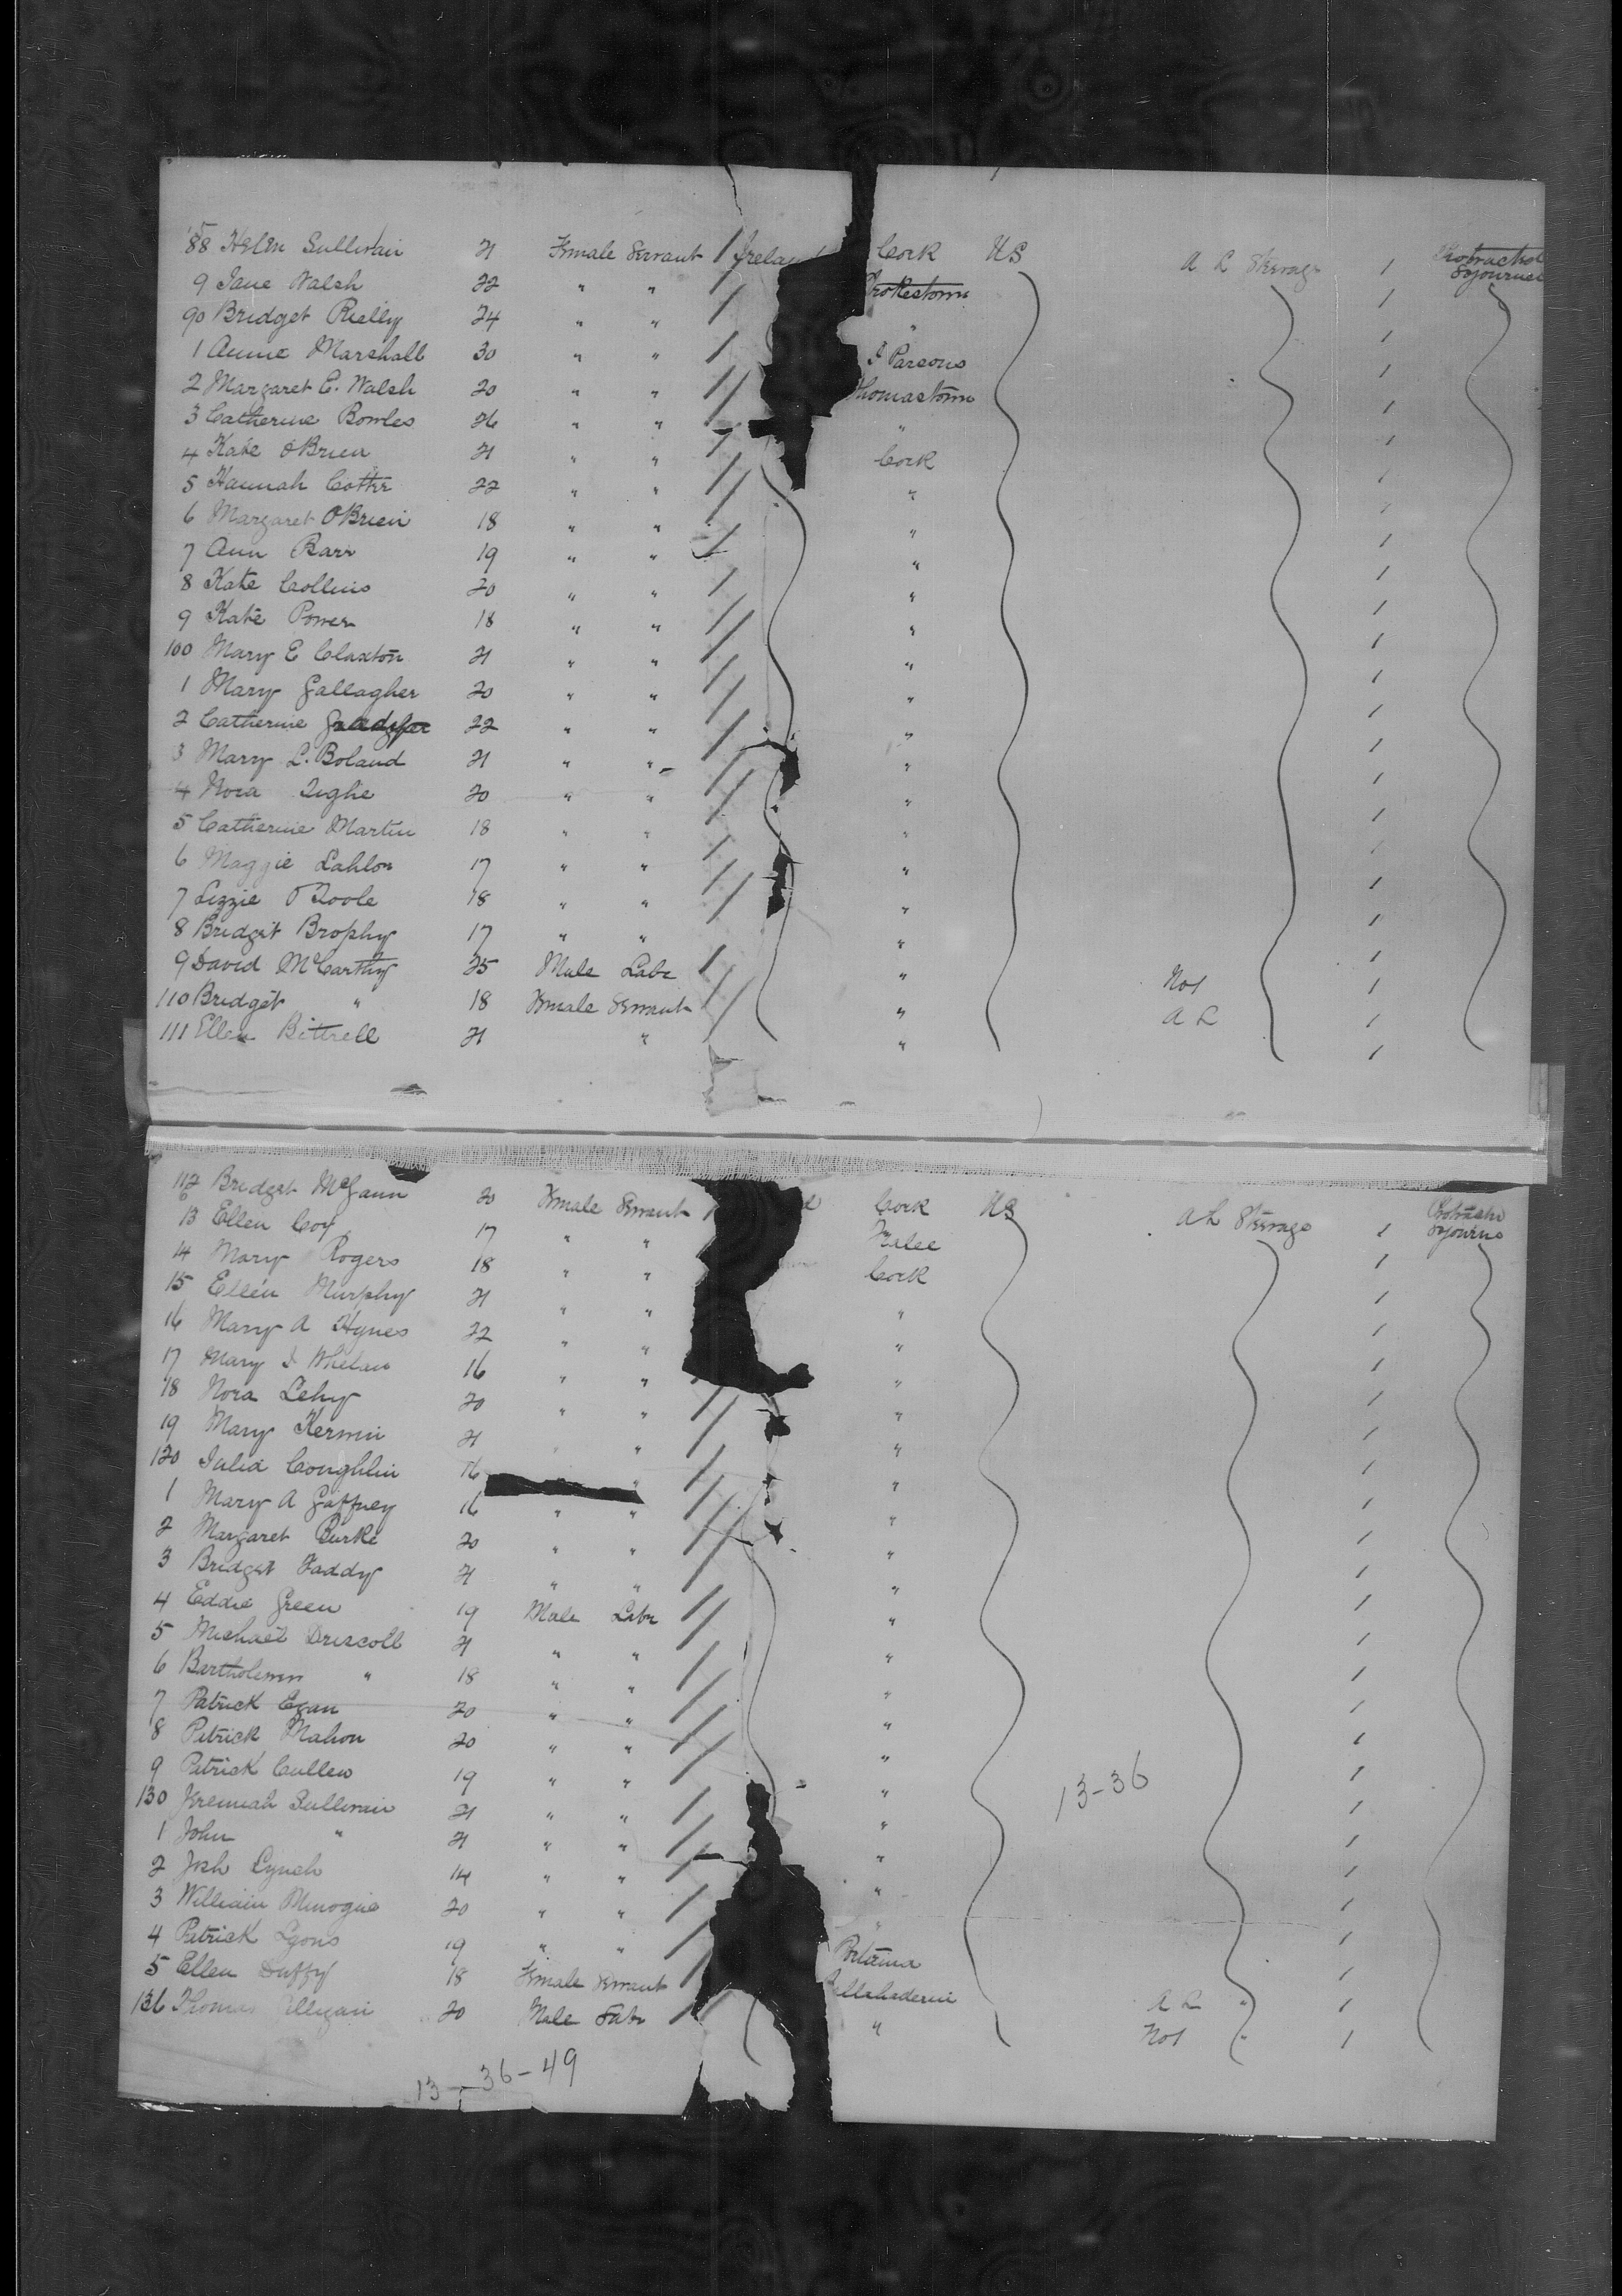 88 Helen Sullivan 21 Female Servant / Irelan Cork US A L Steerage 1 Protracted Sojourne
9 Jane Walsh 22 " " / rokestown 1
90 Bridget Rielly 24 " " / " 1
1 Annie Marshall 30 " " / Parsons 1
2 Margaret C. Walsh 20 " " // homastown 1
3 Catherine Bowles 26 " " // " 1
4 Kate OBrien 21 " " / Cork 1
5 Hannah Cotter 22 " " // " 1
6 Margaret OBrien 18 " " / " 1
7 Ann Barr 19 " " / " 1
8 Kate Collins 20 " " / " 1
9 Kate Power 18 " " // " 1
100 Mary E Claxton 21 " " // " 1
1 Mary Gallagher 20 " " // " 1
2 Catherine 22 " " / " 1
3 Mary L. Boland 21 " " / " 1
4 Nora Tighe 20 " " // " 1
5 Catherine Martin 18 " " // " 1
6 Maggie 17 " " / " 1
7 Lizzie OToole 18 " " // " 1
8 Bridget Brophy 17 " " " 1
9 David McCarthy 25 Male Labr / " Not 1
110 Bridget " 18 Female Servant // " A L 1
111 Ellen Bittrell 21 " / " 1
112 Bridget McGann 20 Female Servant / Cork US A L Steerage 1 Sojourne
13 Ellen Coy 17 " " Tralee 1
14 Mary Rogers 18 " " Cork 1
15 Ellen Murphy 21 " " " 1
16 Mary A Hynes 22 " " " 1
17 Mary J Whelan 16 " " / " 1
18 Nora Lehy 20 " " // " 1
19 Mary 21 " " / " 1
120 Julia Coughlin 16 " / " 1
1 Mary A Gaffney 16 " " // " 1
2 Margaret Burke 20 " " // " 1
3 Bridget Faddy 21 " " / " 1
4 Eddie Green 19 Male Labr // " 1
5 Michael Driscoll 21 " " // " 1
6 Bartholemew " 18 " " // " 1
7 Patrick Egan 20 " " / " 1
8 Patrick Mahon 20 " " // " 1
9 Patrick Cullen 19 " " / " 1
13-36
130 Jeremiah Sullivan 21 " " // " 1
1 John " 21 " " / " 1
2 Josh Lynch 14 " " / " 1
3 William Minogue 20 " " / " 1
4 Patrick Lyons 19 " " / Portumna 1
5 Ellen Duffy 18 Female Servant / A L " 1
136 Thomas 20 Male Labr // " Not " 1
13-36-49